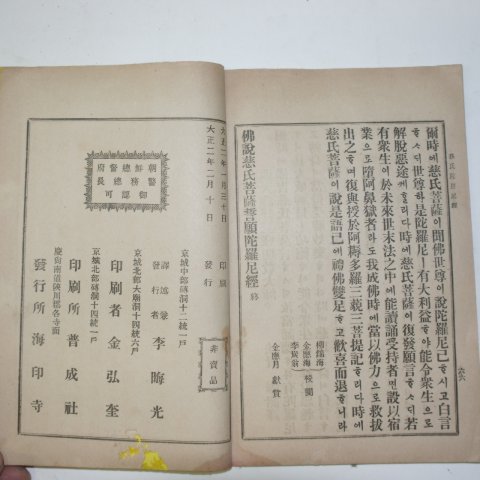 爾時에慈氏菩薩이聞佛世尊이說陀羅尼已ᄒᆞ시고白言
ᄒᆞ샤ᄃᆡ世尊하是陀羅尼ㅣ有大利益ᄒᆞ야能令衆生으로
解脫惡途케ᄒᆞ리다時에慈氏菩薩이復發願言ᄒᆞ샤ᄃᆡ若
有衆生이於未來世末法之中에能讀誦受持者면設以宿
業으로墮阿鼻獄者라도我成佛時에當以佛力으로救拔
出之ᄒᆞ며復與授於阿耨多羅三藐三菩提記ᄒᆞ리다時에慈氏
菩薩이說是語已에禮佛雙足ᄒᆞ고歡喜而退ᄒᆞ니라
金應海 校閱
金應月 獻賞
佛說慈氏菩薩誓願陀羅尼經 終
大正二年一月三十日 印刷
大正二年二月十日 發行
朝鮮總督府
警務總長
御認可
非賣品
京城中部磚洞十二統一戶
發行者 李晦光
京城北部大廟洞十四統六戶
印刷者 金弘奎
京城北部磚洞十四統一戶
印刷所 普成社
慶尙南道陜川郡各寺面
發行所 海印寺